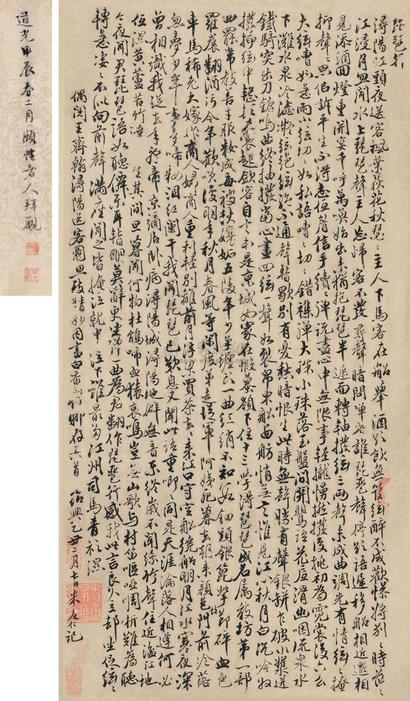 琵琶行
潯陽江頭夜送客楓葉荻花秋瑟瑟主人下馬客在船舉酒欲飲無管絃醉不成歡慘將別別時茫茫
江浸月忽聞水上琵琶聲主人忘歸客不發尋聲暗問彈者誰琵琶聲停欲語遲移船相近邀相
見添酒回燈重開宴千呼萬喚始出來猶抱琵琶半遮面轉軸撥絃三兩聲未成曲調先有情絃絃掩
抑聲聲思似訴平生不得志低眉信手續續彈說盡心中無限事輕攏慢撚撥復挑初為霓裳後六么
大絃嘈嘈如急雨小絃切切如私語嘈嘈切切錯雜彈大珠小珠落玉盤間關鶯語花底滑幽咽流泉水
下灘水泉冷澀絃凝絕凝絕不通聲暫歇別有幽愁暗恨生此時無聲勝有聲銀缾乍破水漿迸
鐵騎突出刀鎗鳴曲終抽撥當心畫四絃一聲如裂帛東船西舫悄無言唯見江心秋月白沉吟收
撥插絃中整頓衣裳起斂容自言本是京城女家在蝦蟇陵下住十三學得琵琶成名屬教坊第一部
曲罷常教善才服妝成每被秋娘妒五陵年少爭纏頭一曲紅綃不知數鈿頭銀篦擊節碎血色
羅裙翻酒污今年歡笑復明年秋月春風等閒度弟走從軍阿姨死暮去朝來顏色故門前冷落
車馬稀老大嫁作商人婦商人重利輕別離前月浮梁買茶去去來江口守空船繞船明月江水寒夜深
忽夢少年事夢啼妝淚紅闌干我聞琵琶已歎息又聞此語重唧唧同是天涯淪落人相逢何必
曾相識我從去年辭帝京謫居臥病潯陽城潯陽地僻無音樂終歲不聞絲竹聲住近湓江地
低濕黃蘆苦竹繞宅生其間旦暮聞何物杜鵑啼血猿哀鳴豈無山歌與村笛嘔啞嘲哳難為聽
今夜聞君琵琶語如聽仙樂耳暫明莫辭更坐彈一曲為君翻作琵琶行感我此言良久立却坐促絃絃
轉急淒淒不似向前聲滿座聞之皆掩泣就中泣下誰最多江州司馬青衫濕
偶閱王齊翰潯陽送客圖紹興乙丑二月
道光甲辰春二月頤性老人拜觀